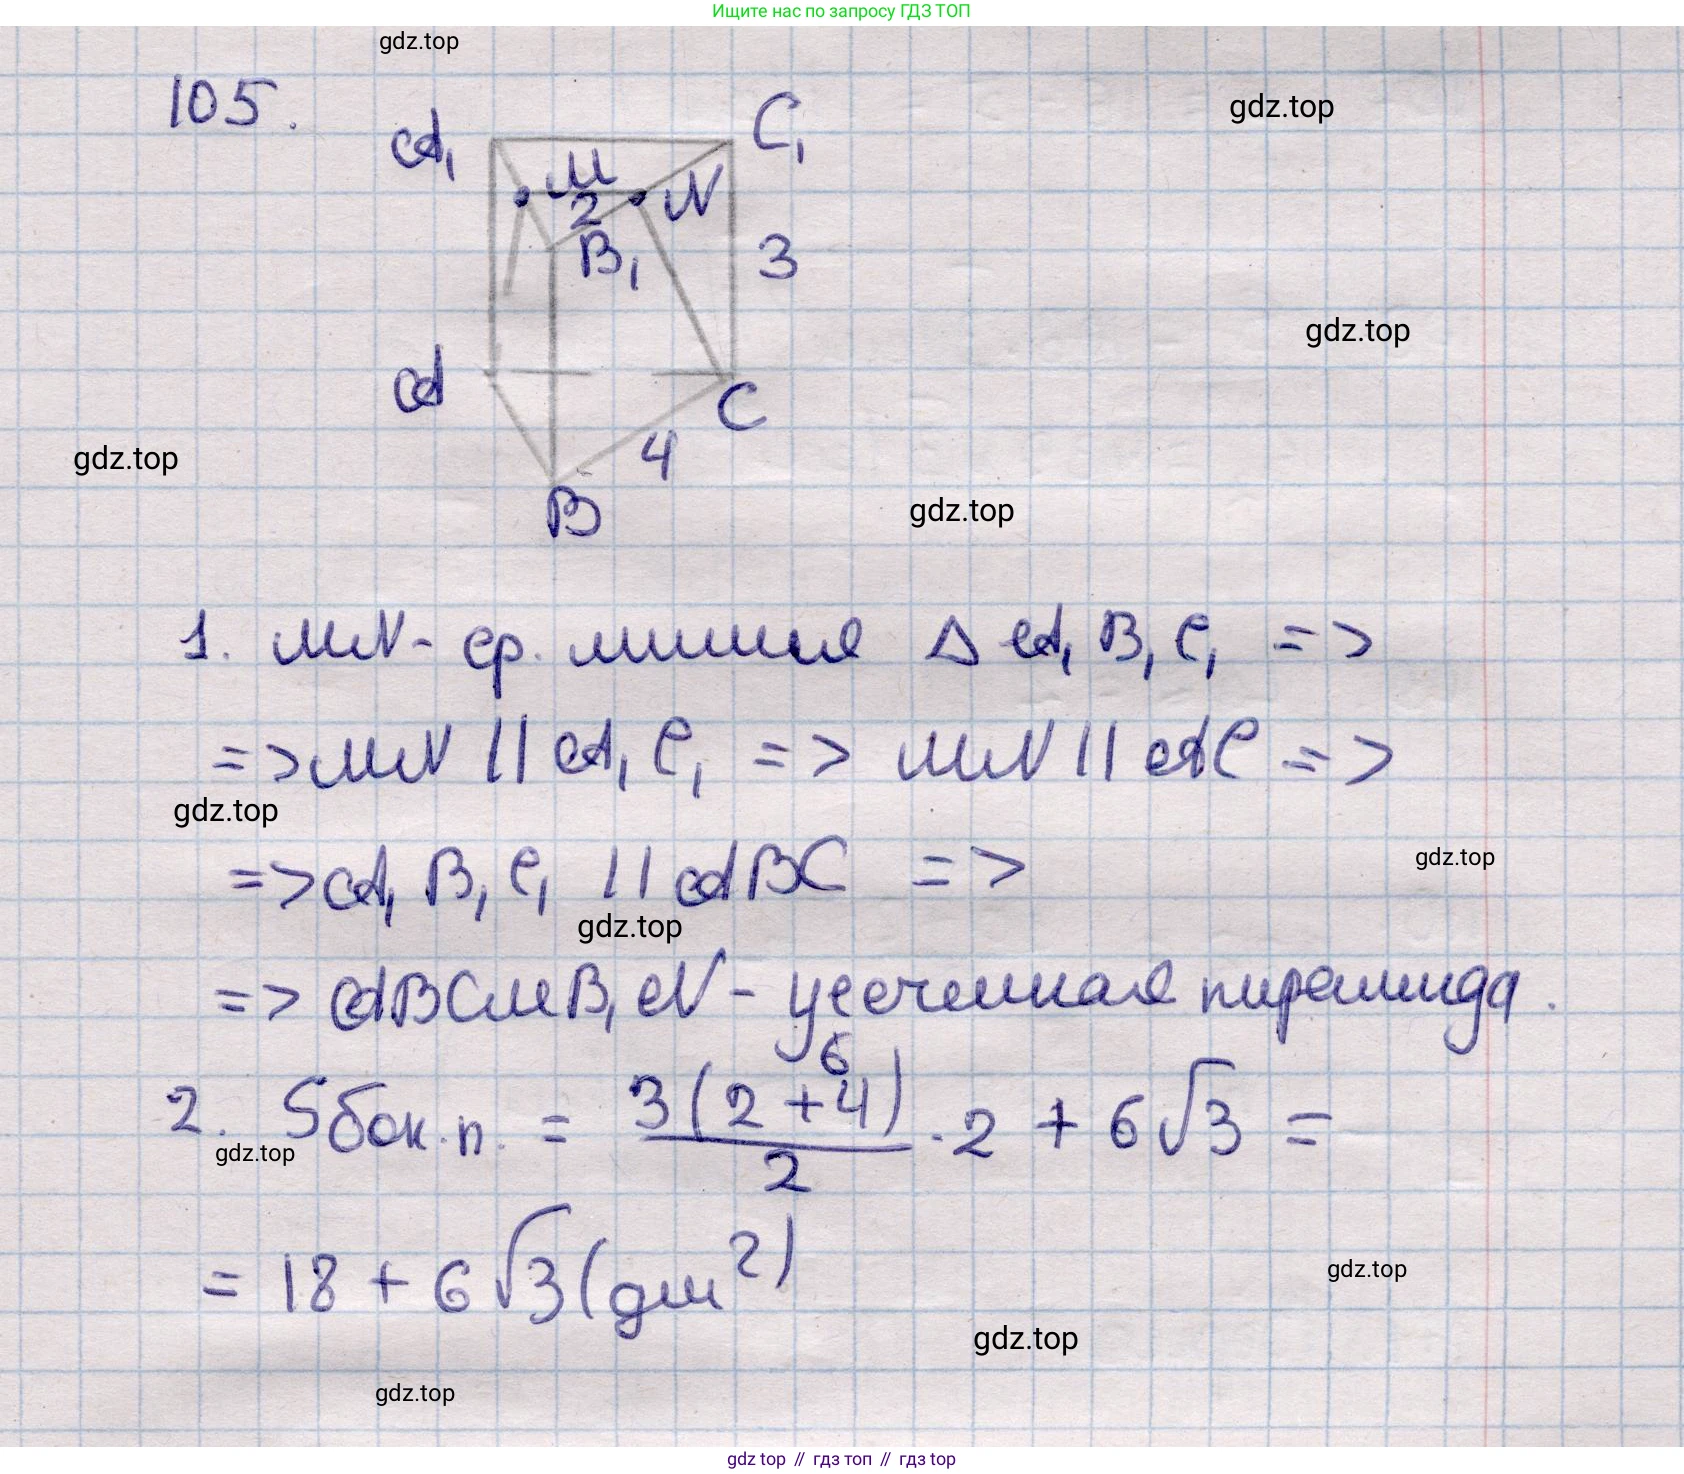 Ищите нас по запросу ГДЗ ТОП
gdz.top
105.
gdz.top
A₁
C₁
M
N
2
B₁
3
gdz.top
A
C
4
gdz.top
B
gdz.top
1. MN - ср. линия Δ A₁B₁C₁ =>
=> MN || A₁C₁ => MN || AC =>
gdz.top
=> A₁B₁C₁ || ABC =>
gdz.top
gdz.top
=> ABCMB₁N - усеченная пирамида.
6
2. Sбок.п. = 3(2+4)/2 · 2 + 6√3 =
gdz.top
= 18 + 6√3 (дм²)
gdz.top
gdz.top
gdz.top
gdz top // гдз топ // гдз top